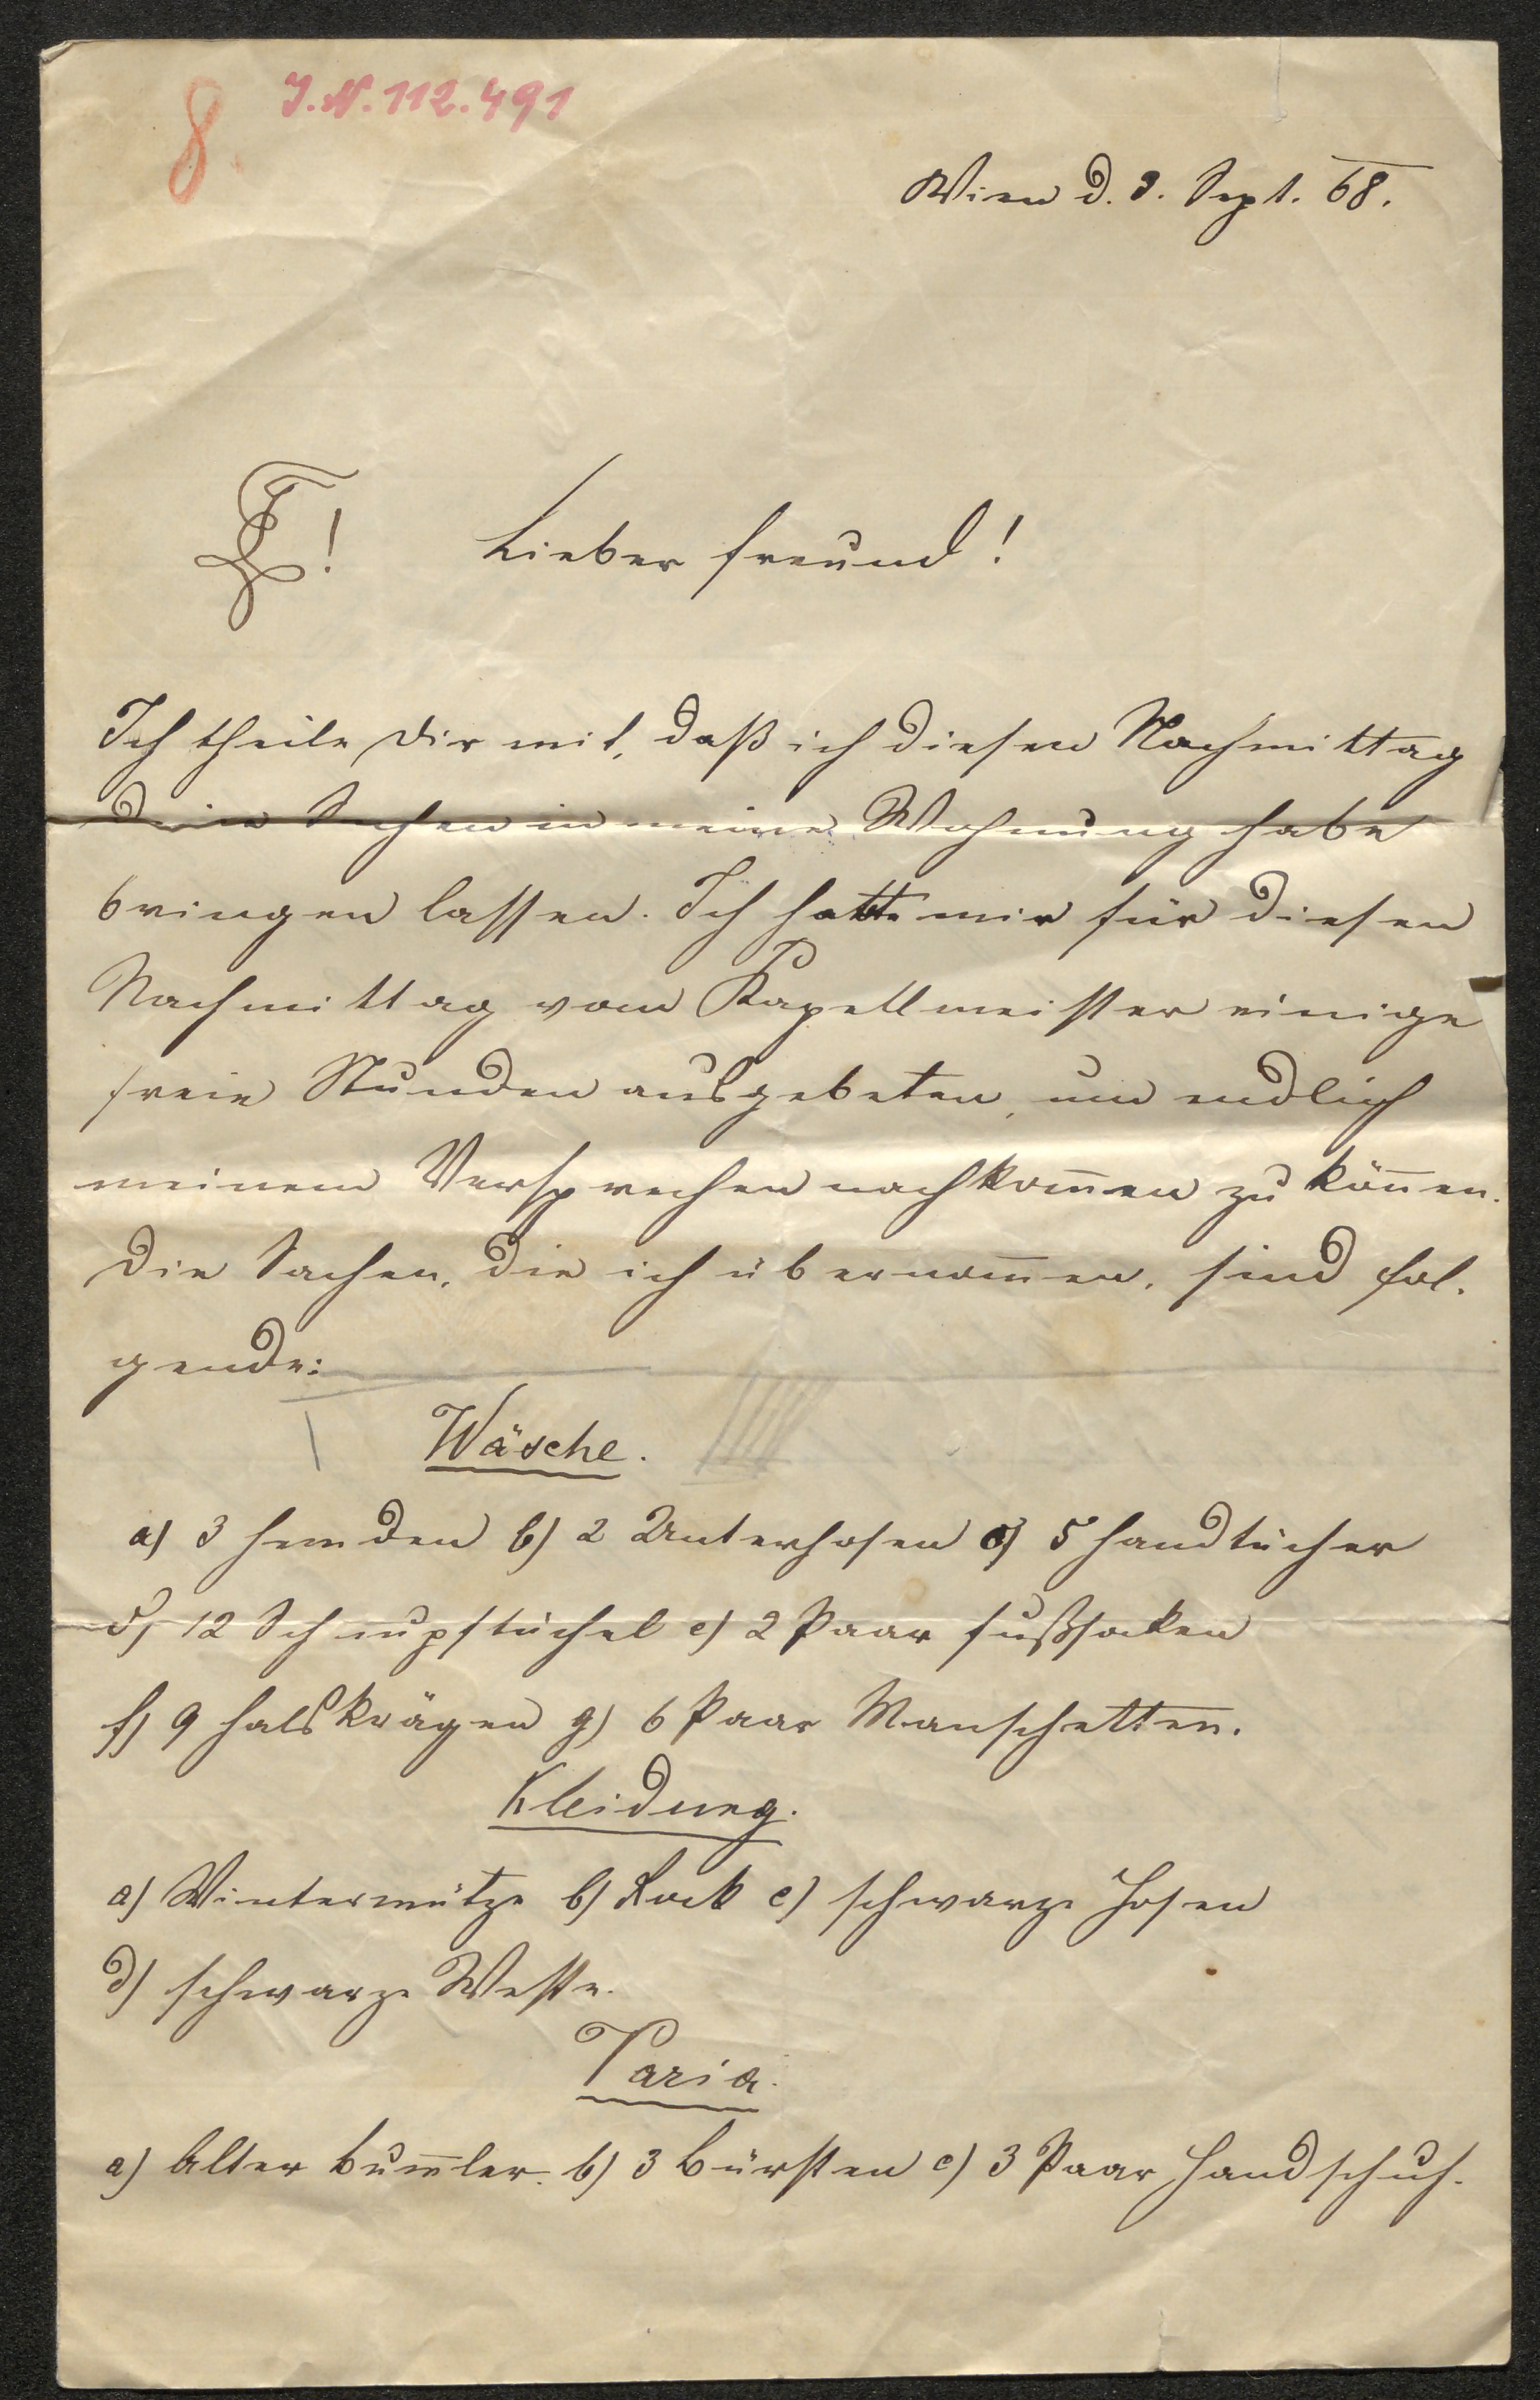 8.
I.N. 112.491
Wien d. 9. Sept. 68.
Lieber Freund!
Ich theile Dir mit, daß ich diesen Nachmittag
Deine Sachen in meine Wohnung habe
bringen lassen. Ich hatte mir für diesen
Nachmittag vom Kapellmeister einige
freie Stunden ausgebeten, um endlich
meinem Versprechen nachkom̄en zu kön̄en.
Die Sachen, die ich übernom̄en, sind fol-
gende:
Wäsche.
a) 3 Hemden b) 2 Unterhosen c) 5 Handtücher
d) 12 Schnupftüchel e) 2 Paar Fußsocken
f) 9 Halskrägen g) 6 Paar Manschetten.
Kleidung.
a) Wintermütze b) Rock c) schwarze Hosen
d) schwarze Weste.
Varia.
a) Alter Bum̄ler. b) 3 Bürsten c) 3 Paar Handschuh.